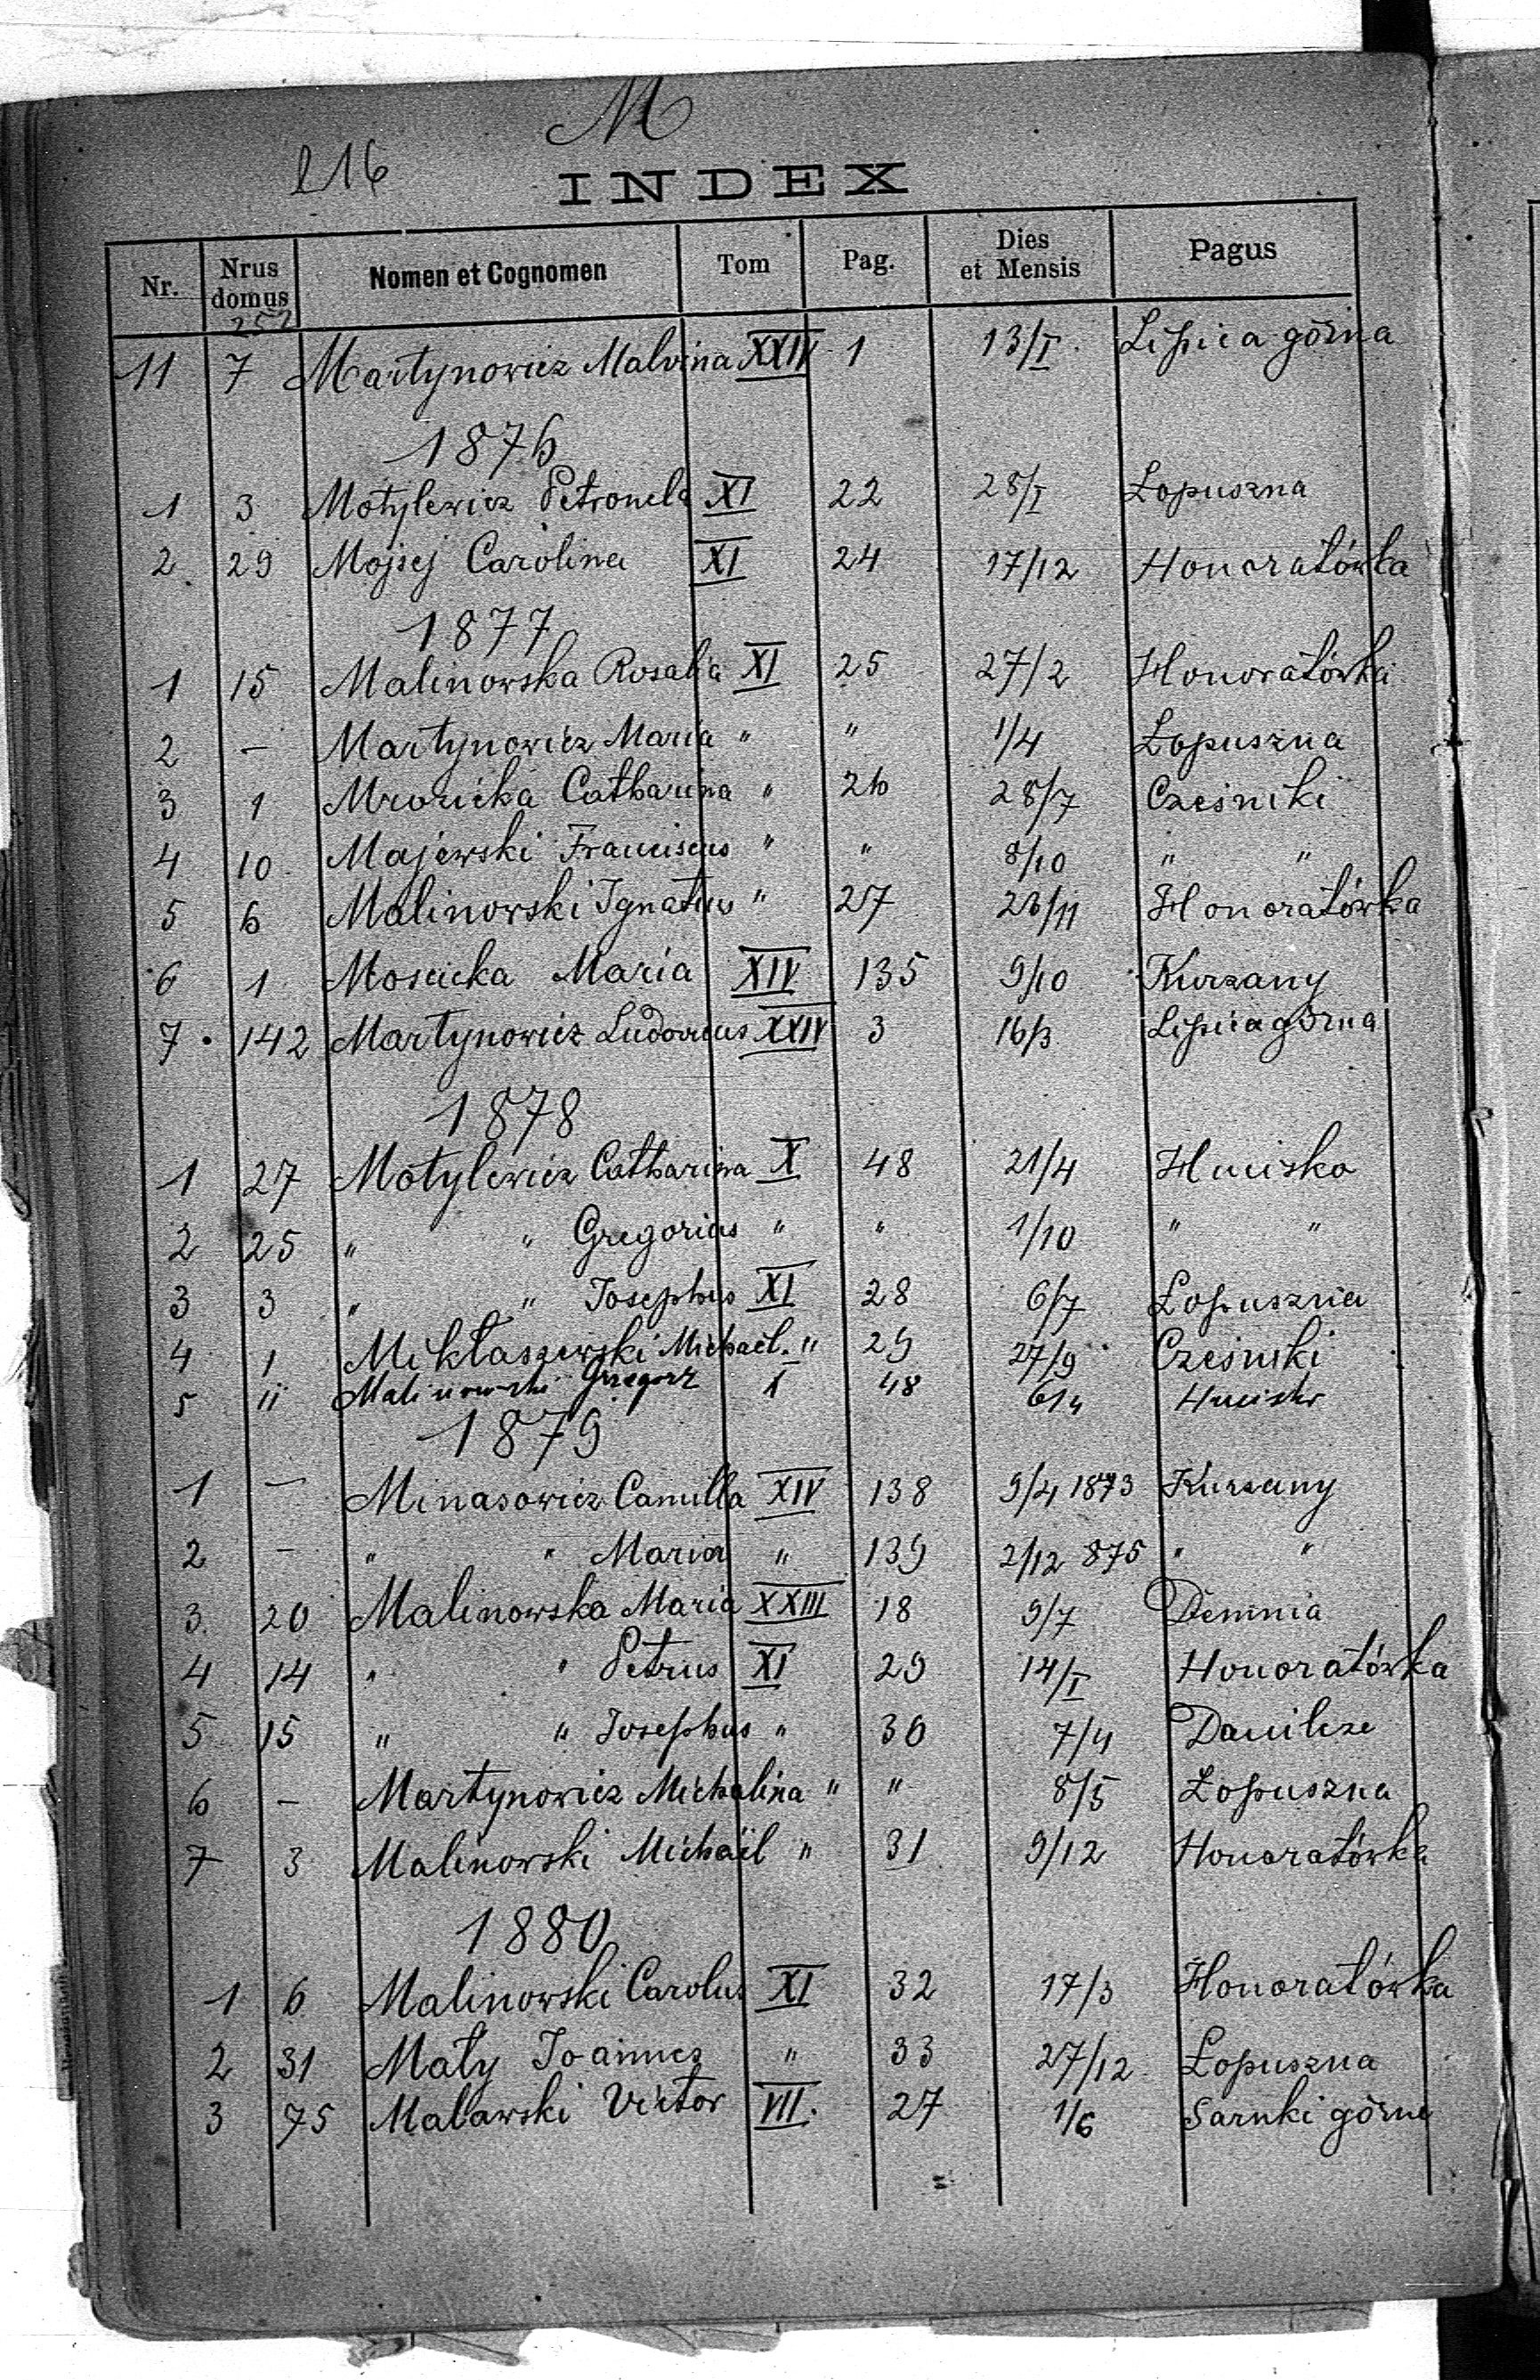 M
216
INDEX
Nr. Nrus domus Nomen et Cognomen Tom Pag. Dies et Mensis Pagus
257
11 7 Martynowicz Malvina XXIV 1 13/I. Lipica górna
1876
1 3 Motylewicz Petronela XI 22 28/I Łopuszna
2. 29 Mojsej Carolina XI 24 17/12 Honoratówka
1877
1 15 Malinowska Rosalia XI 25 27/2 Honoratówka
2 – Martynowicz Maria " " 1/4 Łopuszna
3 1 Mrozicka Catharina " 26 28/7 Cześniki
4 10 Majewski Franciscus " " 8/10 " "
5 6 Malinowski Ignatius " 27 23/11 Honoratówka
6 1 Moscicka Maria XIV 135 9/10 Kurzany
7. 142 Martynowicz Ludovicus XXIV 3 16/3 Lipica górna
1878
1 27 Motylewicz Catharina X 48 21/4 Hucisko
2 25 " " Gregorius " " 1/10 " "
3 3 " " Josephus XI 28 6/7 Łopuszna
4 1 Mikłaszewski Michael. " 29 27/9 Cześniki
5 11 Malinowski Grzegorz X 48 6/4 Hucisko
1879
1 – Minasowicz Camilla XIV 138 9/4 1873 Kurzany
2 – " " Maria " 139 2/12 875 " "
3. 20 Malinowska Maria XXIII 18 9/7 Demnia
4 14 " " Petrus XI 29 14/I Honoratówka
5 15 " " Josephus " 30 7/4 Danilcze
6 – Martynowicz Michalina " " 8/5 Łopuszna
7 3 Malinowski Michaël " 31 9/12 Honoratówka
1880
1 6 Malinowski Carolus XI 32 17/3 Honoratówka
2 31 Mały Joannes " 33 27/12 Łopuszna
3 75 Malawski Victor VII. 27 1/6 Sarnki górne